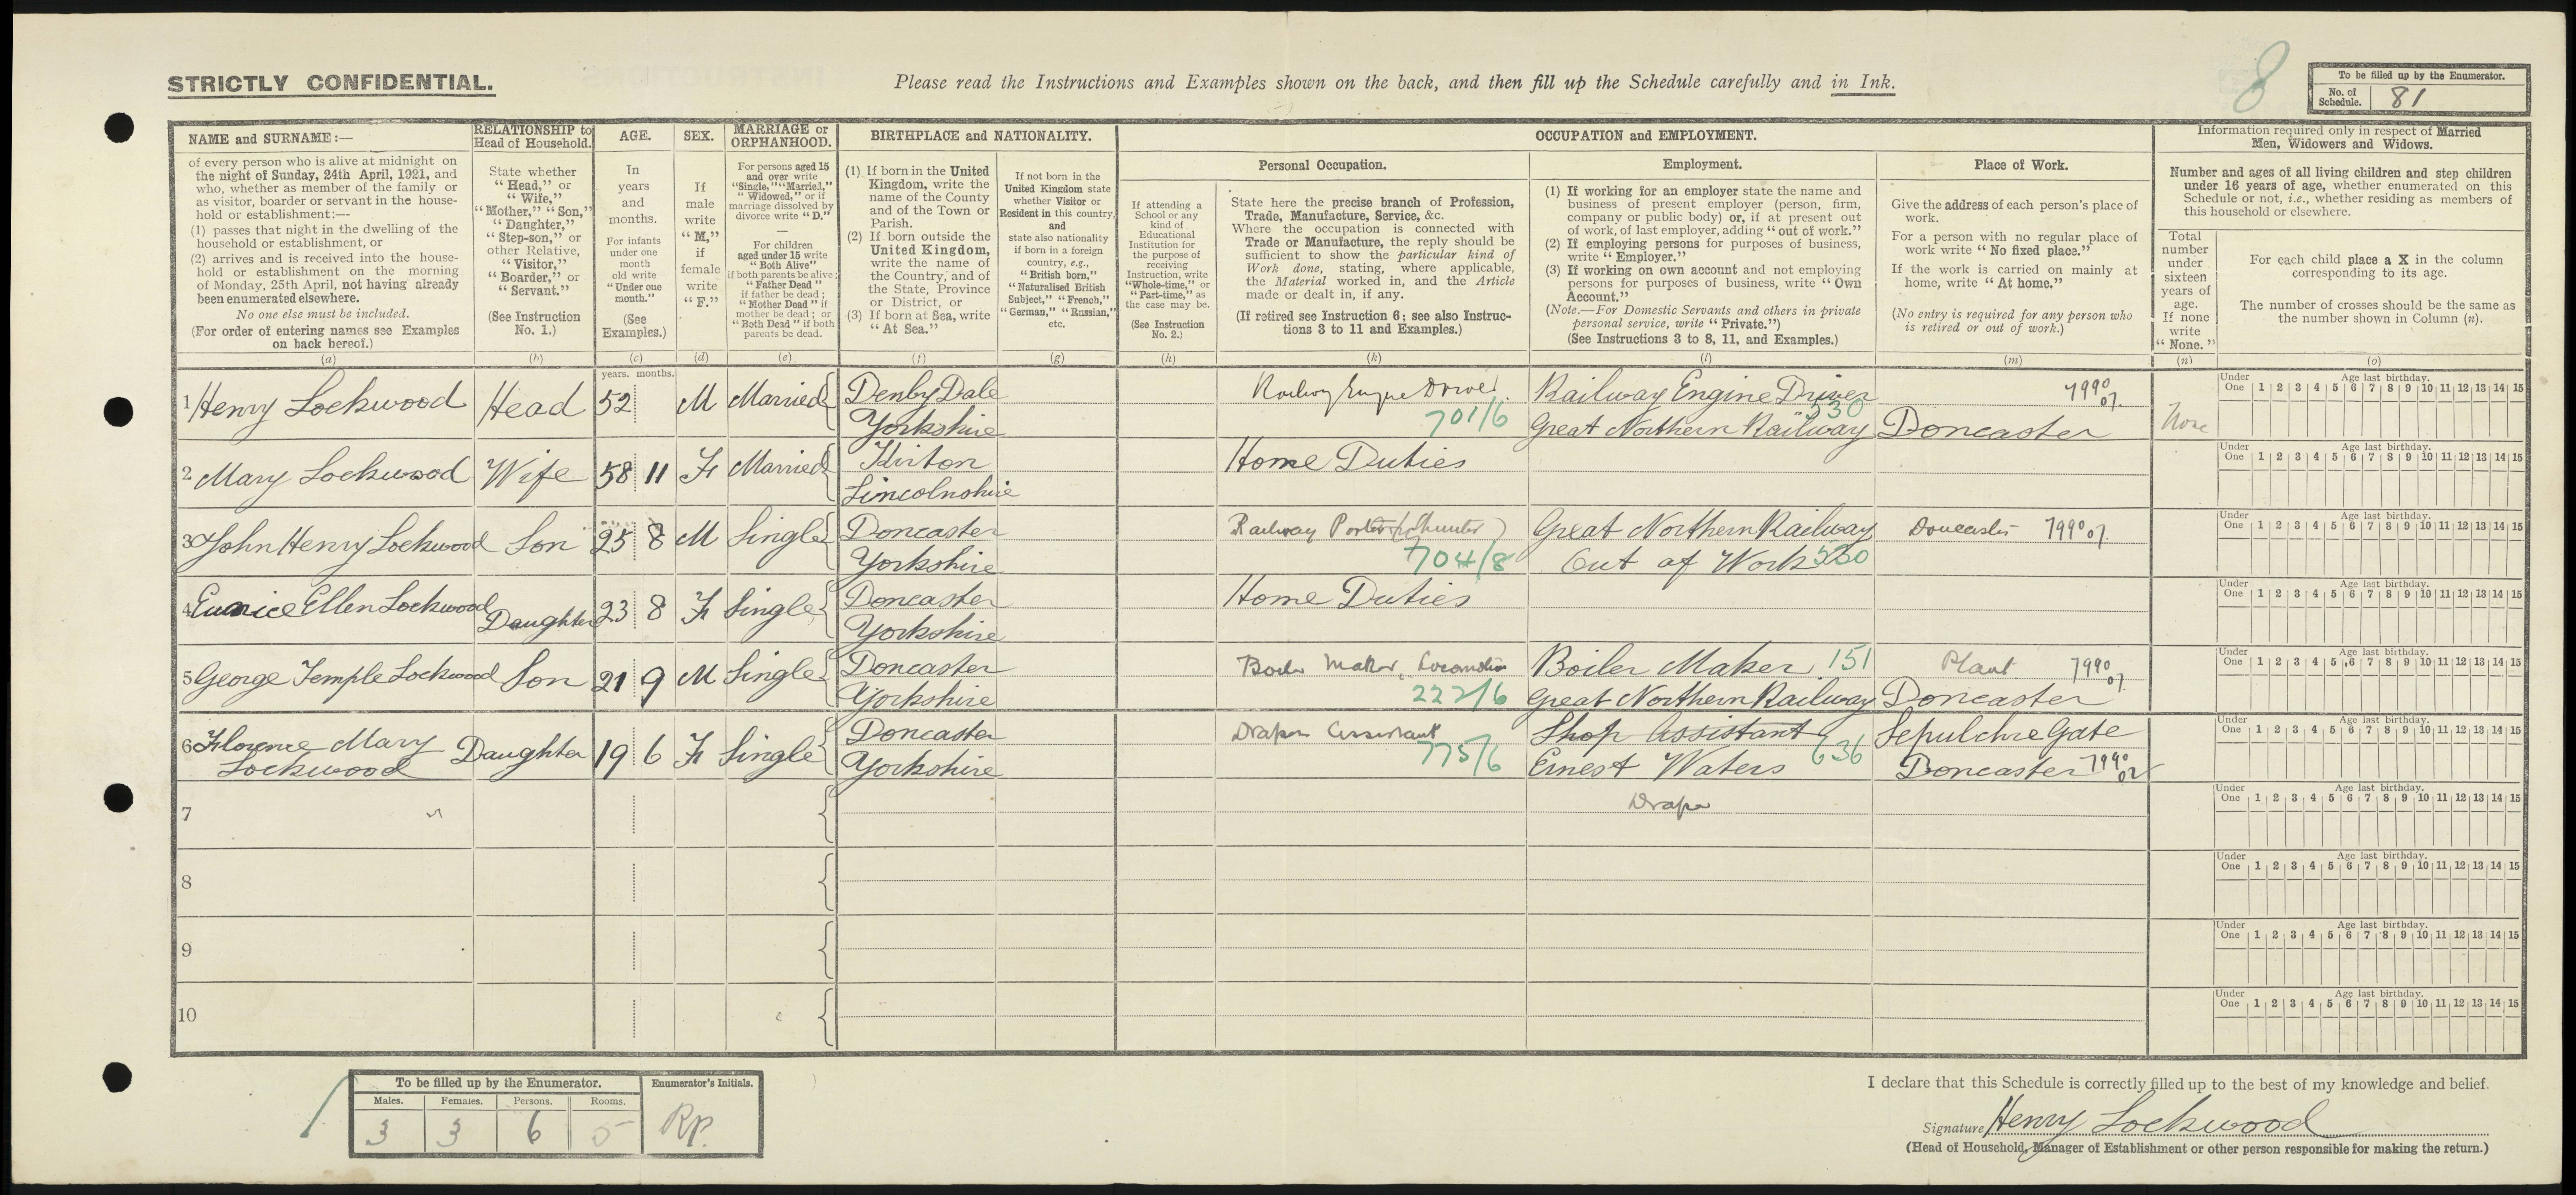 STRICTLY CONFIDENTIAL.
Please read the Instructions and Examples shown on the back, and then fill up the Schedule carefully and in Ink.
8
To be filled up by the Enumerator.
No. of Schedule. 81
NAME and SURNAME:—
of every person who is alive at midnight on
the night of Sunday, 24th April, 1921, and
who, whether as member of the family or
as visitor, boarder or servant in the house-
hold or establishment:—
(1) passes that night in the dwelling of the
household or establishment, or
(2) arrives and is received into the house-
hold or establishment on the morning
of Monday, 25th April, not having already
been enumerated elsewhere.
No one else must be included.
(For order of entering names see Examples
on back hereof.)
(a)
RELATIONSHIP to
Head of Household.
State whether
"Head," or
"Wife,"
"Mother," "Son,"
"Daughter,"
"Step-son," or
other Relative,
"Visitor,"
"Boarder," or
"Servant."
(See Instruction
No. 1.)
(b)
AGE.
In
years
and
months.
For infants
under one
month
old write
"Under one
month."
(See
Examples.)
(c)
SEX.
If
male
write
"M,"
if
female
write
"F."
(d)
MARRIAGE or
ORPHANHOOD.
For persons aged 15
and over write
"Single," "Married,"
"Widowed," or if
marriage dissolved by
divorce write "D."
—
For children
aged under 15 write
"Both Alive"
if both parents be alive;
"Father Dead"
if father be dead;
"Mother Dead" if
mother be dead; or
"Both Dead" if both
parents be dead.
(e)
BIRTHPLACE and NATIONALITY.
(1) If born in the United
Kingdom, write the
name of the County
and of the Town or
Parish.
(2) If born outside the
United Kingdom,
write the name of
the Country, and of
the State, Province
or District, or
(3) If born at Sea, write
"At Sea."
(f)
If not born in the
United Kingdom state
whether Visitor or
Resident in this country,
and
state also nationality
if born in a foreign
country, e.g.,
"British born,"
"Naturalised British
Subject," "French,"
"German," "Russian,"
etc.
(g)
OCCUPATION and EMPLOYMENT.
If attending a
School or any
kind of
Educational
Institution for
the purpose of
receiving
Instruction, write
"Whole-time," or
"Part-time," as
the case may be.
(See Instruction
No. 2.)
(h)
Personal Occupation.
State here the precise branch of Profession,
Trade, Manufacture, Service, &c.
Where the occupation is connected with
Trade or Manufacture, the reply should be
sufficient to show the particular kind of
Work done, stating, where applicable,
the Material worked in, and the Article
made or dealt in, if any.
(If retired see Instruction 6; see also Instruc-
tions 3 to 11 and Examples.)
(k)
Employment.
(1) If working for an employer state the name and
business of present employer (person, firm,
company or public body) or, if at present out
of work, of last employer, adding "out of work."
(2) If employing persons for purposes of business,
write "Employer."
(3) If working on own account and not employing
persons for purposes of business, write "Own
Account."
(Note.—For Domestic Servants and others in private
personal service, write "Private.")
(See Instructions 3 to 8, 11, and Examples.)
(l)
Place of Work.
Give the address of each person's place of
work.
For a person with no regular place of
work write "No fixed place."
If the work is carried on mainly at
home, write "At home."
(No entry is required for any person who
is retired or out of work.)
(m)
Information required only in respect of Married
Men, Widowers and Widows.
Number and ages of all living children and step children
under 16 years of age, whether enumerated on this
Schedule or not, i.e., whether residing as members of
this household or elsewhere.
Total
number
under
sixteen
years of
age.
If none
write
"None."
(n)
For each child place a X in the column
corresponding to its age.
The number of crosses should be the same as
the number shown in Column (n).
(o)
years. months.
1 Henry Lockwood Head 52 M Married Denby Dale Railway Engine Driver Railway Engine Driver 7990 07.
Yorkshire 701/6 Great Northern Railway 530 Doncaster None
Under One Age last birthday. 1 2 3 4 5 6 7 8 9 10 11 12 13 14 15
2 Mary Lockwood Wife 58 11 F Married Kirton Home Duties
Lincolnshire
Under One Age last birthday. 1 2 3 4 5 6 7 8 9 10 11 12 13 14 15
3 John Henry Lockwood Son 25 8 M Single Doncaster Railway Porter (Shunter) Great Northern Railway Doncaster 7990 07.
Yorkshire 704/8 Out of Work 530
Under One Age last birthday. 1 2 3 4 5 6 7 8 9 10 11 12 13 14 15
4 Eunice Ellen Lockwood Daughter 23 8 F Single Doncaster Home Duties
Yorkshire
Under One Age last birthday. 1 2 3 4 5 6 7 8 9 10 11 12 13 14 15
5 George Temple Lockwood Son 21 9 M Single Doncaster Boiler Maker, Locomotive Boiler Maker 151 Plant 7990 07.
Yorkshire 222/6 Great Northern Railway Doncaster
Under One Age last birthday. 1 2 3 4 5 6 7 8 9 10 11 12 13 14 15
6 Florence Mary Daughter 19 6 F Single Doncaster Drapers Assistant Shop Assistant Sepulchre Gate
Lockwood Yorkshire 775/6 Ernest Waters 636 Doncaster 7990 07
Under One Age last birthday. 1 2 3 4 5 6 7 8 9 10 11 12 13 14 15
7 Draper
Under One Age last birthday. 1 2 3 4 5 6 7 8 9 10 11 12 13 14 15
8
Under One Age last birthday. 1 2 3 4 5 6 7 8 9 10 11 12 13 14 15
9
Under One Age last birthday. 1 2 3 4 5 6 7 8 9 10 11 12 13 14 15
10
Under One Age last birthday. 1 2 3 4 5 6 7 8 9 10 11 12 13 14 15
To be filled up by the Enumerator.
Males. Females. Persons. Rooms.
3 3 6 5
Enumerator's Initials.
RP.
I declare that this Schedule is correctly filled up to the best of my knowledge and belief.
Signature Henry Lockwood
(Head of Household, Manager of Establishment or other person responsible for making the return.)